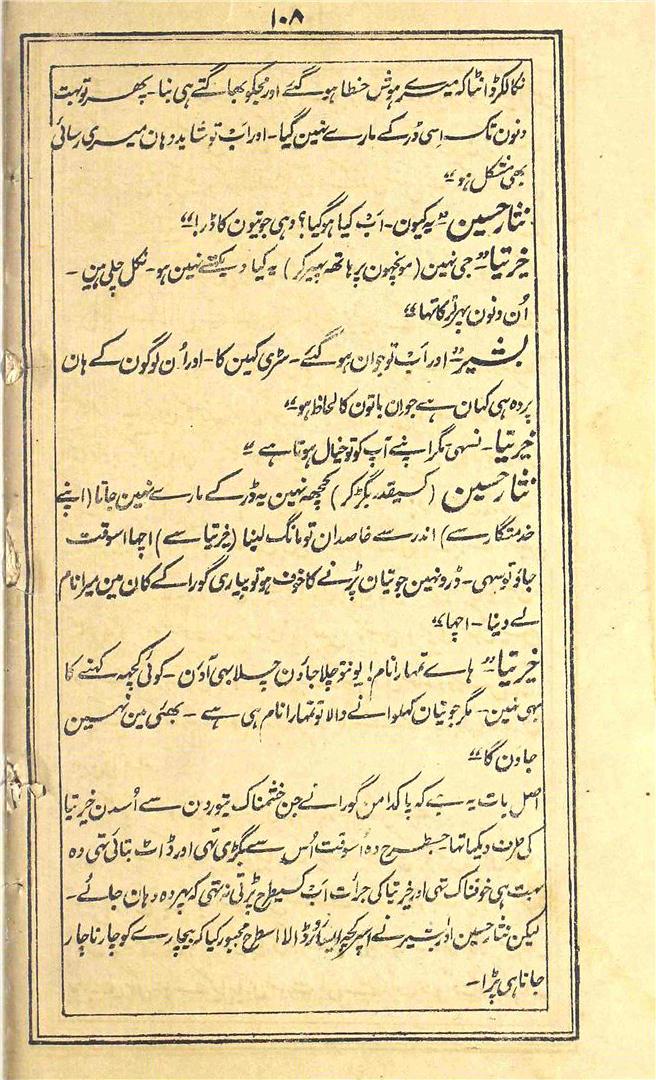 ۱۰۸
نکالکر ڈانٹا کہ میرے ہوش خطا ہو گئے اور مجکو بھاگتے ہی بنا۔ پھر تو بہت
دنون تک اسی ڈر کے مارے نہین گیا۔ اور اب تو شاید وہان میری رسائی
بھی مشکل ہو“
نثار حسین ”یہ کیون۔ اب کیا ہو گیا؟ وہی جوتیون کا ڈر!“
خیرتیا ”جی نہین (مونچھون پر ہاتھ پھیر کر) یہ کیا دیکھتے نہین ہو۔ نکل چلی ہین۔
اُن دنون پھر لڑکا تھا“
بشیر ”اور اب تو جوان ہو گئے۔ سڑی کہین کا۔ اور اُن لوگون کے ہان
پردہ ہی کہان ہے جو ان باتون کا لحاظ ہو“
خیرتیا۔ نسہی مگر اپنے آپ کو تو خیال ہوتا ہے“
نثار حسین (کسیقدر بگڑ کر) کچھ نہین یہ ڈر کے مارے نہین جاتا (اپنے
خدمتگار سے) اندر سے خاصدان تو مانگ لینا (خیرتیا سے) اچھا اسوقت
جاؤ تو سہی۔ ڈرو نہین جوتیان پڑنے کا خوف ہو تو پیاری گورا کے کان مین میرا نام
لے دینا۔ اچھا“
خیرتیا ”ہاے تمہارا نام! یونتو چلا جاؤن چلا بھی آؤن۔ کوئی کچھ کہنے کا
بھی نہین۔ مگر جوتیان کھلوانے والا تو تمہارا نام ہی ہے۔ بھئی مین نہین
جاون گا“
اصل بات یہ ہے کہ پاکدامن گورا نے جن خشمناک تیورون سے اُسدن خیرتیا
کی طرف دیکھا تھا۔ جسطرح وہ اُسوقت اُس سے بگڑی تھی اور ڈاٹ بتائی تھی وہ
بہت ہی خوفناک تھی اور خیرتیا کی جرأت اب کسیطرح پڑتی نہ تھی کہ پھر وہ وہان جائے۔
لیکن نثار حسین اور بشیر نے اسپر کچھ ایسا زور ڈالا اسطرح مجبور کیا کہ بیچارے کو چار ناچار
جانا ہی پڑا۔